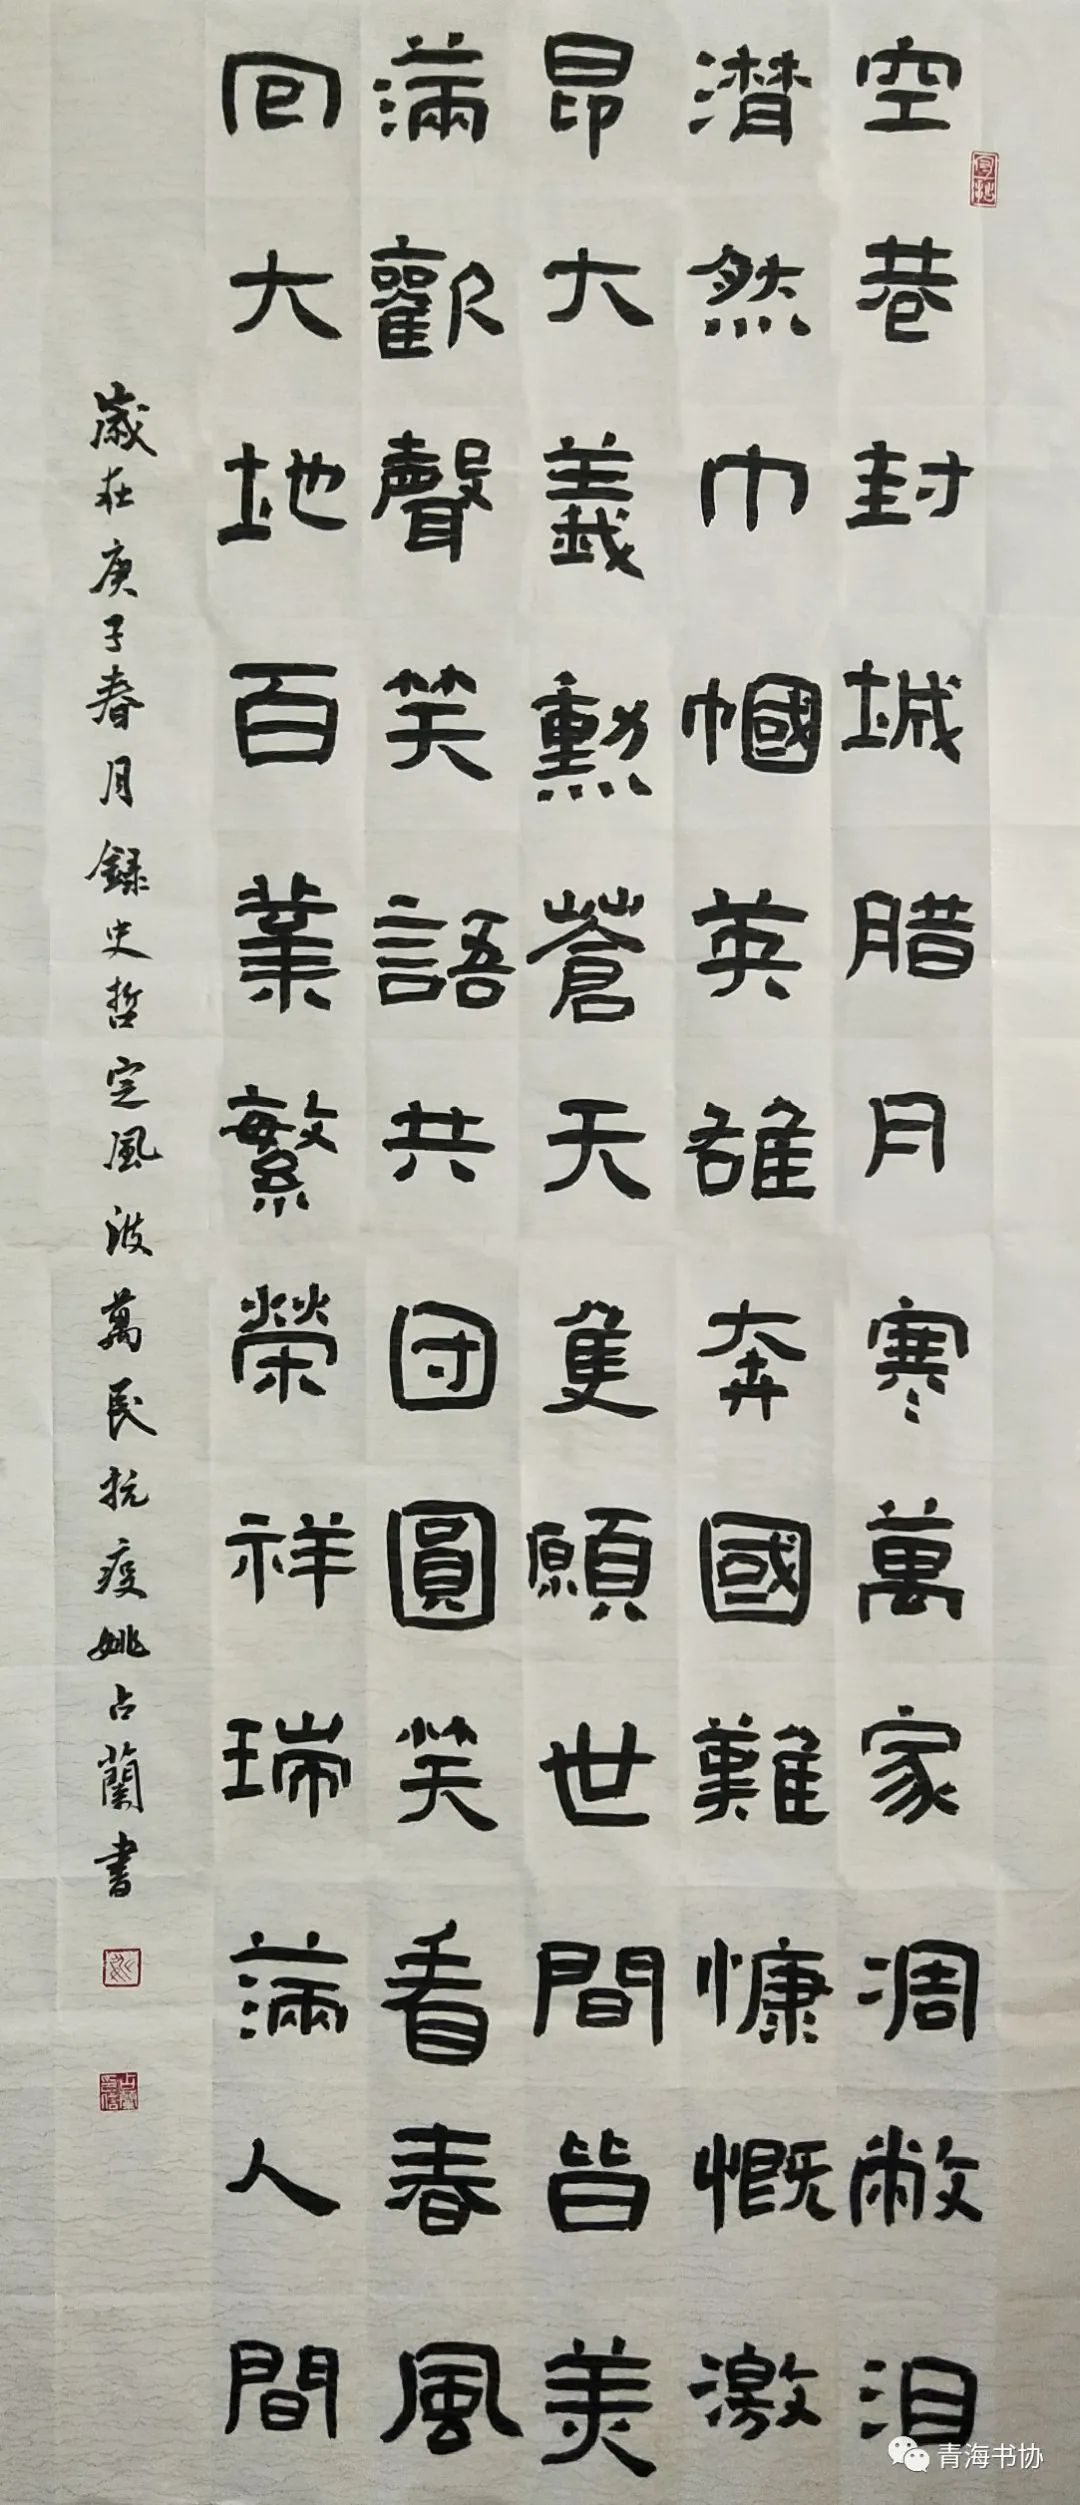 空巷封城腊月寒萬家凋敝泪
潸然巾幗英雄奔國難慷慨激
昂大義勳蒼天隻願世間皆美
满歡聲笑語共团圓笑看春風
回大地百業繁榮祥瑞满人間
歲在庚子春月録史哲定風波萬民抗疫姚占蘭書
青海书协